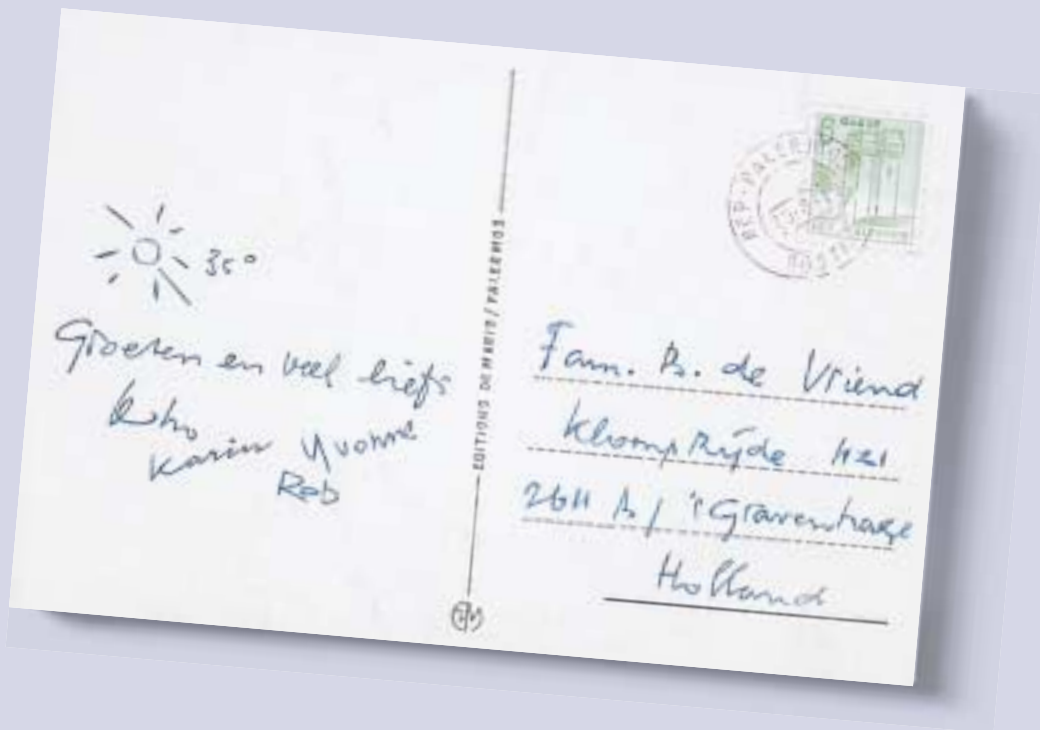 35°
Groeten en veel liefs
Karin Yvonne
Rob
EDITIONS DE MARIO / PALERMOS
REP. PALERMO
Fam. B. de Vriend
421
's Gravenhage
Holland